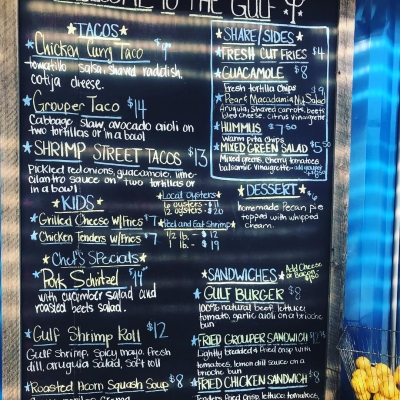 TO THE GULF
TACOS
Chicken Curry Taco $9
tomatillo salsa, shaved raddish,
cotija cheese.
Grouper Taco $14
Cabbage slaw, avocado aioli on
two tortillas or in a bowl
SHRIMP STREET TACOS $13
Pickled red onions, guacamole, lime-
cilantro sauce on two tortillas or
in a bowl
KIDS
Grilled Cheese w/Fries $7
Chicken Tenders w/Fries $7
Chef's Specials
Pork Schnitzel $14
with cucumber salad and
roasted beets salad.
Gulf Shrimp Roll $12
Gulf shrimp, spicy mayo, fresh
dill, arugula salad, soft roll
Roasted Acorn Squash Soup $8
SHARE/SIDES
FRESH CUT FRIES $4
GUACAMOLE $8
Fresh tortilla chips
Pear & Macadamia Nut Salad $9
arugula, shaved carrots, beets,
bleu cheese, citrus vinaigrette
HUMMUS $7.50
warm pita chips
MIXED GREEN SALAD $5.50
Mixed greens, cherry tomatoes
balsamic vinaigrette - add grouper
Local Oysters
6 oysters - $11
12 oysters - $20
Peel and Eat Shrimp
1/2 lb. - $12
1 lb. - $19
DESSERT
$6
homemade Pecan pie
topped with whipped
cream.
SANDWICHES
Add Cheese
or Bacon
GULF BURGER $8
100% natural beef, lettuce,
tomato, garlic aioli on a brioche
bun
FRIED GROUPER SANDWICH
Lightly breaded & fried crisp with
tomatoes, lemon dill sauce on a
brioche bun
FRIED CHICKEN SANDWICH $8
Tenders fried crisp, lettuce, tomatoes,